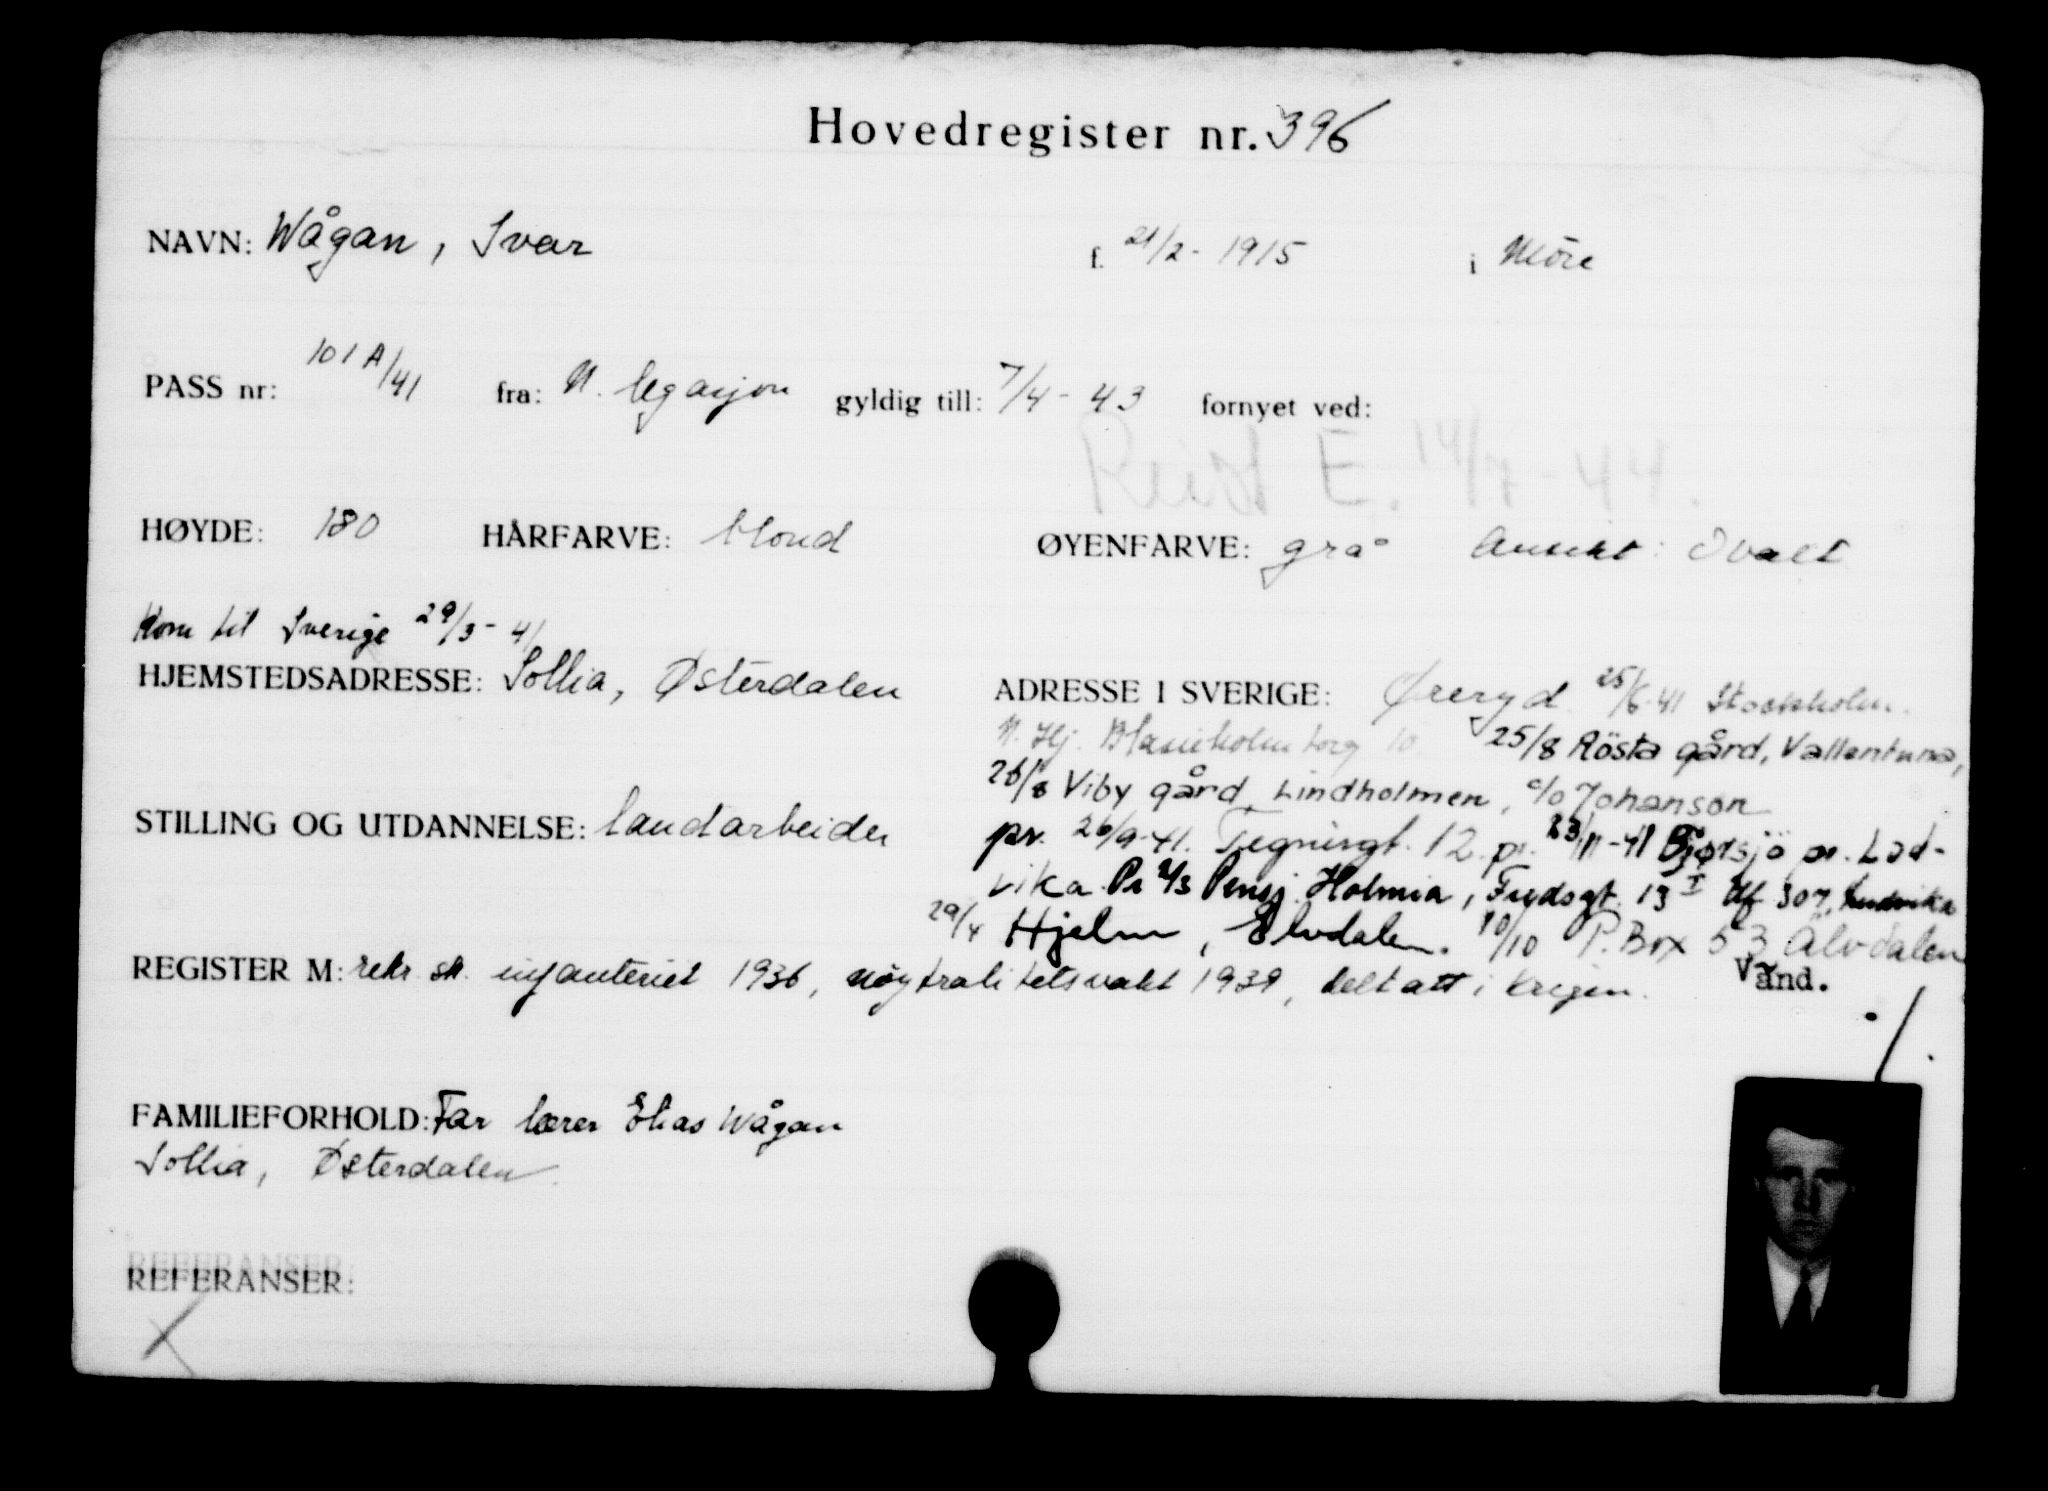 Hovedregister nr. 396
NAVN: Wågan, Ivar f. 21/2-1915 i Möre
PASS nr: 101 A/41 fra: N. legasjon gyldig till: 7/4-43 fornyet ved:
Reist E. 14/7-44.
HØYDE: 180 HÅRFARVE: blond ØYENFARVE: grå Ansikt: Ovalt
Kom til Sverige 29/3-41
HJEMSTEDSADRESSE: Sollia, Østerdalen ADRESSE I SVERIGE: Øreryd 25/6-41 Stockholm.
N. Hj. Blasieholmtorg 10 25/8 Rösta gård, Vallentuna,
26/8 Viby gård, Lindholmen, c/o Johanson
STILLING OG UTDANNELSE: landarbeider
pr. 26/9-41. Tegnérgt. 12. pr. 23/11-41 pr. Lud-
vika. Pr 2/3 Pensj. Holmia, Fredsgt. 13 I tlf 307, Ludvika
29/4 Hjelm, Elvdalen. 10/10 P. Box 53 Älvdalen
REGISTER M: rekr. sk. infanteriet 1936, nøytralitetsvakt 1939, deltatt i krigen. Vånd.
FAMILIEFORHOLD: Far lærer Elias Wågan
Sollia, Østerdalen
REFERANSER: